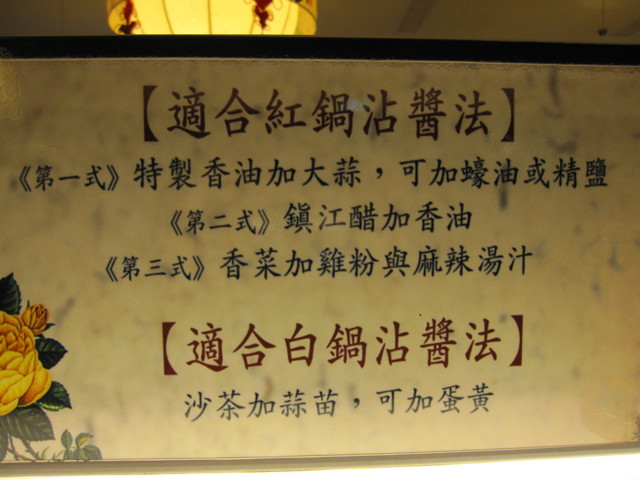 【適合紅鍋沾醬法】
《第一式》特製香油加大蒜，可加蠔油或精鹽
《第二式》鎮江醋加香油
《第三式》香菜加雞粉與麻辣湯汁
【適合白鍋沾醬法】
沙茶加蒜苗，可加蛋黃